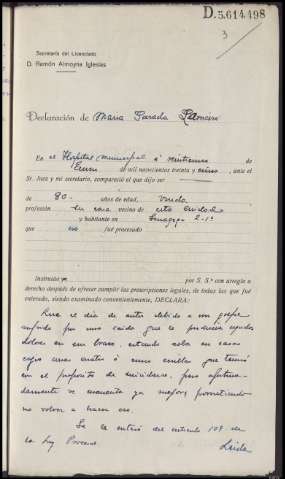 D.5.614.498
3
Secretaría del Licenciado
D. Ramón Almoyna Iglesias
Declaración de Maria Parada
En el Hospital Municipal á veintinueve de
Enero de mil novecientos treinta y cinco, ante el
Sr. Juez y mi secretario, compareció el que dijo ser
de 80 años de edad, viuda
profesión su casa vecina de esta ciudad
y habitante en Sinagoga 2-1º
que no fué procesado
Instruida por S. Sª con arreglo a
derecho después de ofrecer cumplir las prescripciones legales, de todas las que fué
enterado, siendo examinado convenientemente, DECLARA:
Que el día de autos debido a un golpe
sufrido por una caida que le producia agudos
dolores en un brazo, estando sola en casa
cogió unas cuatro ó cinco cerillas que tenia
con el propósito de suicidarse, pero afortuna-
damente se encuentra ya mejor, prometiendo
no volver a hacer eso.
Se la enteró del artículo 109 de
la Ley Procesal.
Leida